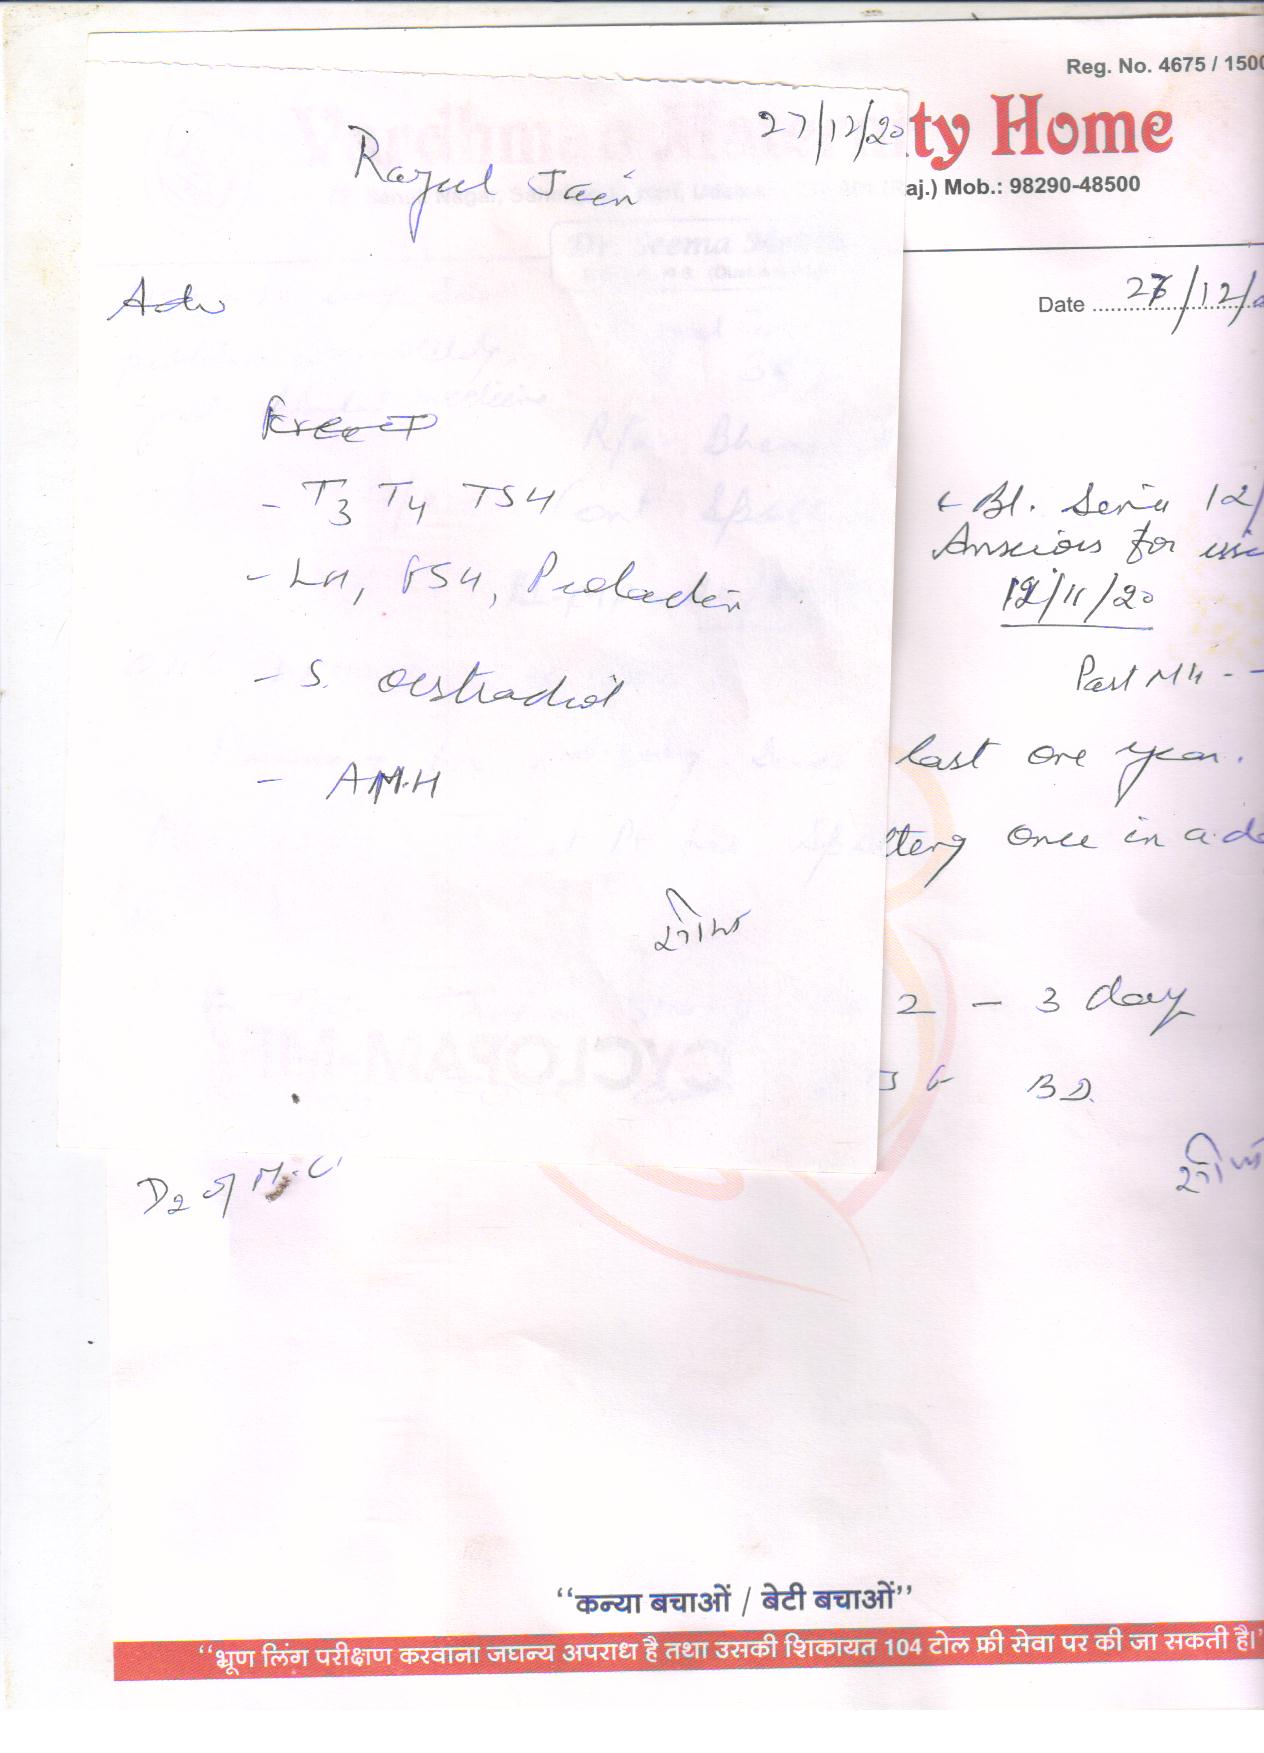 Reg. No. 4675 / 1500
ty Home
aj.) Mob.: 98290-48500
27/12/20
Rajul Jain
Date 27/12/
Adv
Free T
- T3 T4 TSH
- LH, FSH, Prolactin
- S. Oestradiol
- AMH
सीमा
Bl. Seria 12/
Anxious for
12/11/20
Past MH - -
last one year.
once in a d
2 - 3 day
BD
सीमा
D2 of M.C.
“कन्या बचाओं / बेटी बचाओं”
“भ्रूण लिंग परीक्षण करवाना जघन्य अपराध है तथा उसकी शिकायत 104 टोल फ्री सेवा पर की जा सकती है।”